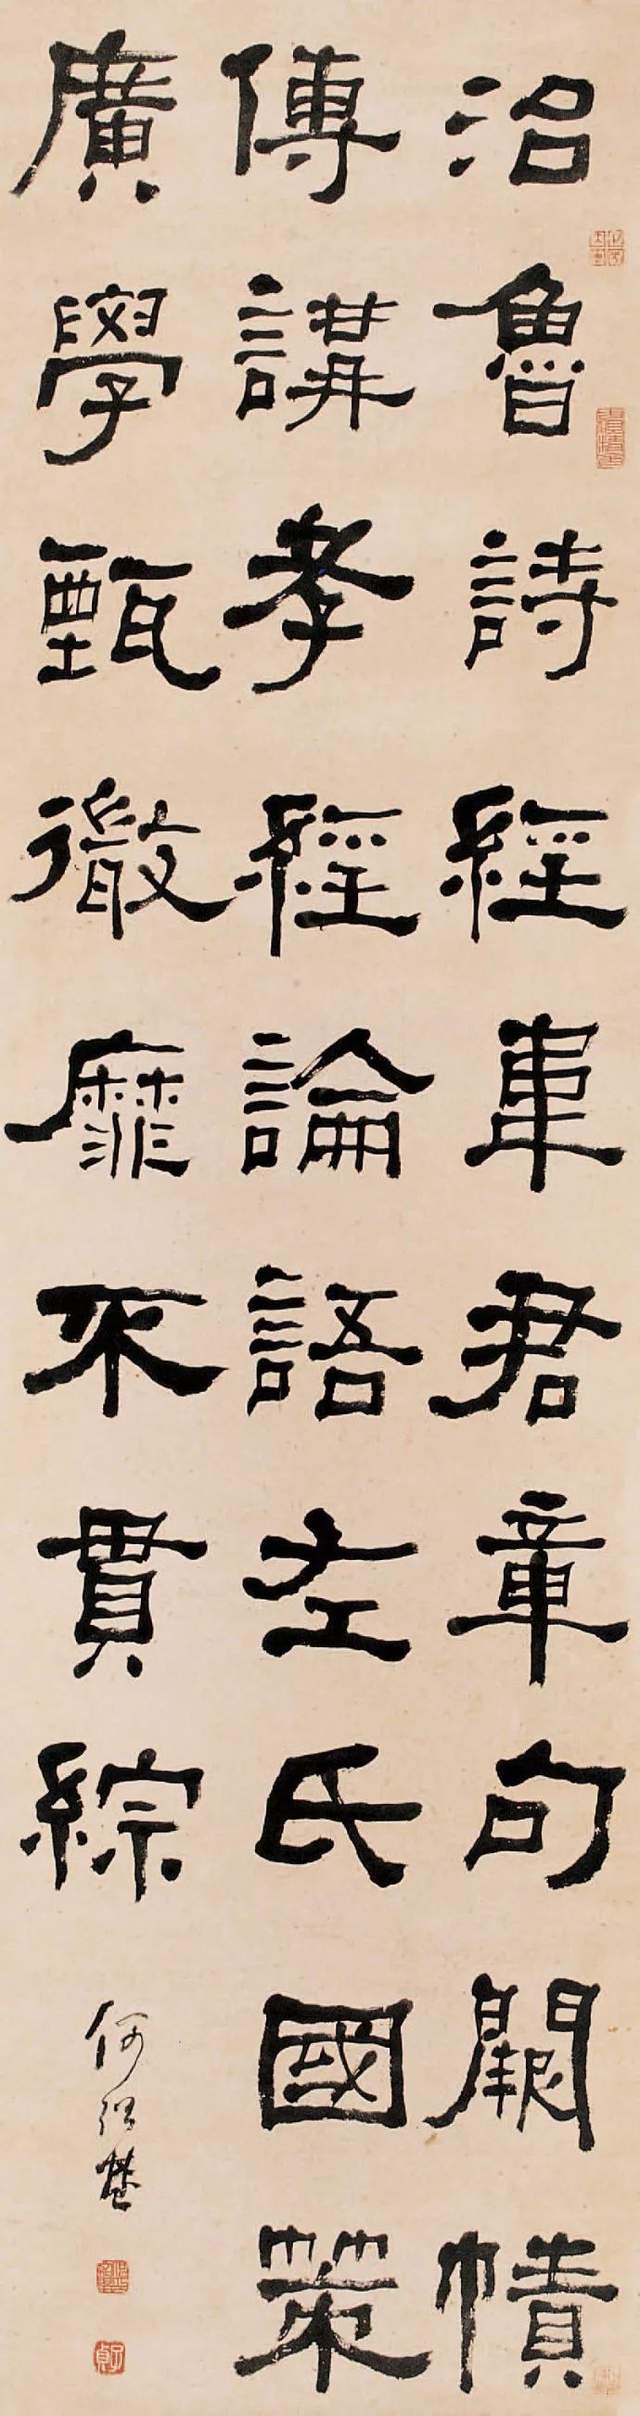 治魯詩經韋君章句闕幘
傳講孝經論語左氏國策
廣學甄微靡不貫綜
何紹基
子貞